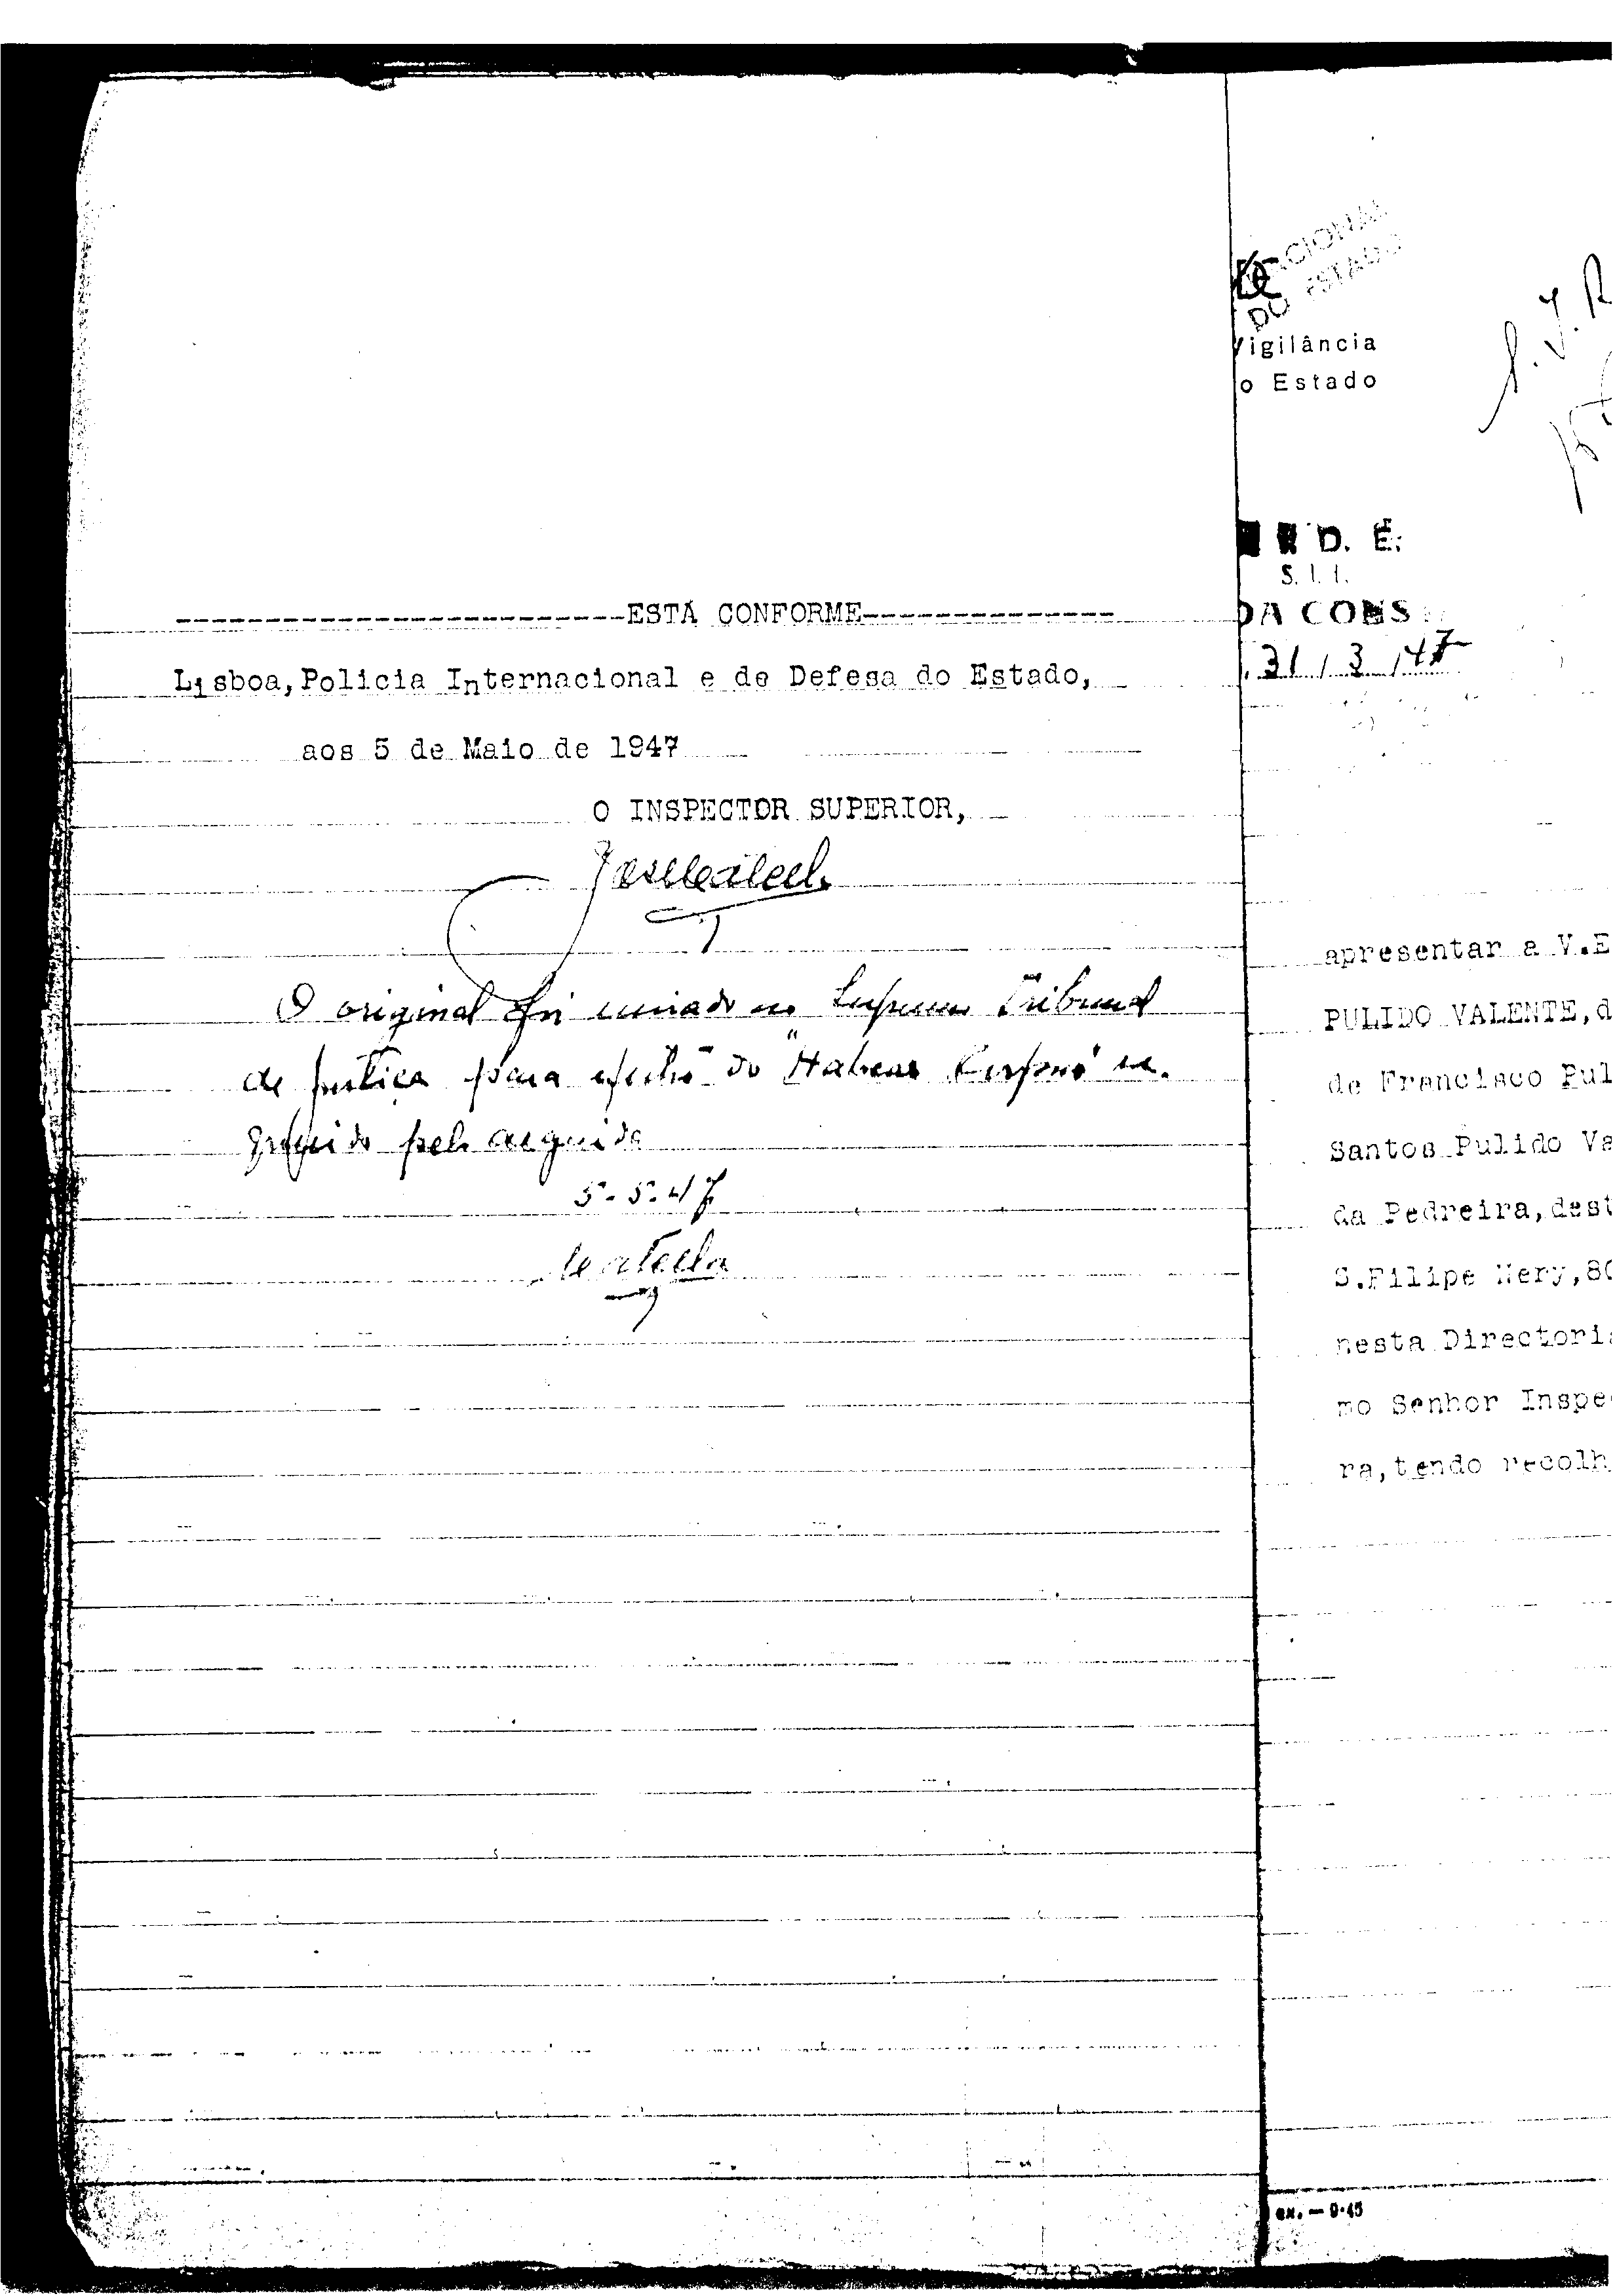 -------------------------ESTÁ CONFORME--------------
Lisboa, Policia Internacional e de Defesa do Estado,
aos 5 de Maio de 1947
O INSPECTOR SUPERIOR,
O original foi enviado ao Supremo Tribunal
de Justiça para efeito do "Habeas Corpus" re-
querido pelo arguido
5-5-47
CIONAL
DO ESTADO
Vigilância
o Estado
D. E.
S. I. I.
DA CONS
31/3/47
apresentar a V.E
PULIDO VALENTE, d
de Francisco Pul
Santos Pulido Va
da Pedreira, dest
S.Filipe Nery, 80
nesta Directoria
mo Senhor Inspec
ra, tendo recolh
ex. — 9-45